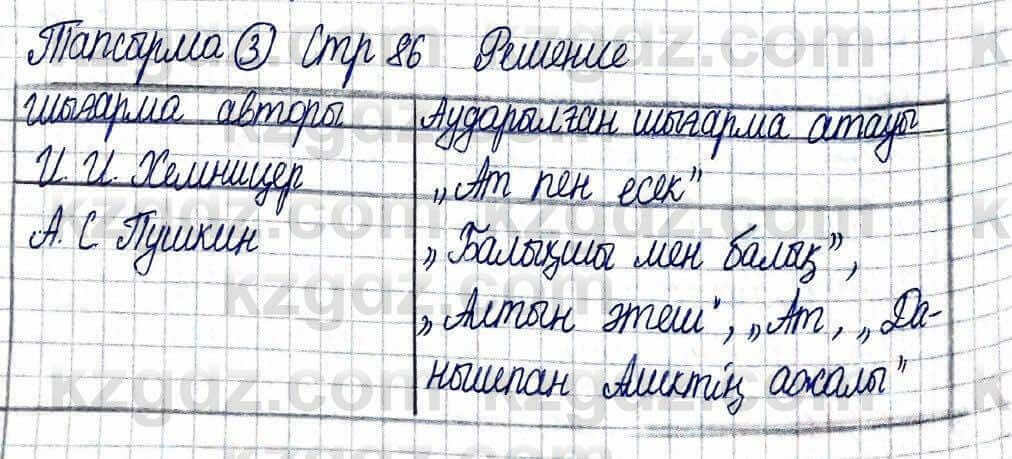 Тапсырма 3 Стр 86 Решение
шығарма авторы Аударылған шығарма атауы
И. И. Хемницер „Ат пен есек"
А. С Пушкин „Балықшы мен балық",
„Алтын этеш", „Ат, „Да-
нышпан Аликтің ажалы"
kzgdz.com